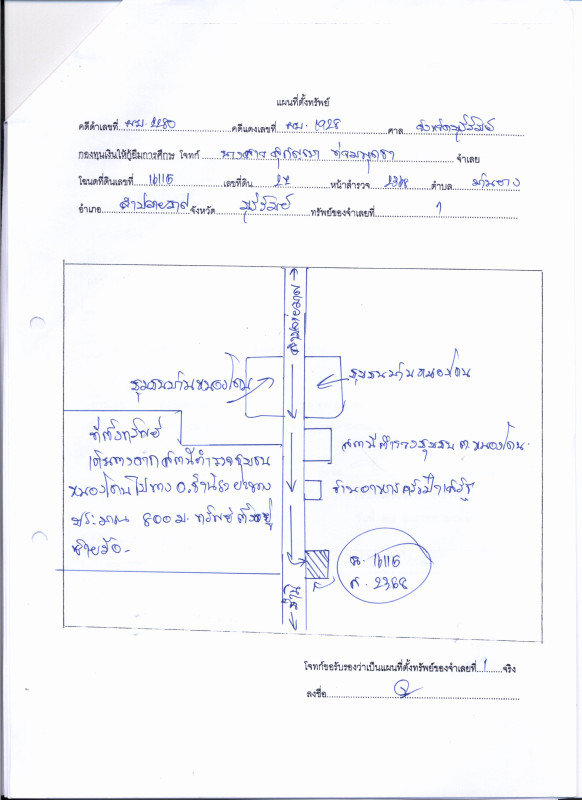 แผนที่ตั้งทรัพย์
คดีดำเลขที่ ผบ. 2280 คดีแดงเลขที่ ผบ. 1928 ศาล จังหวัดบุรีรัมย์
กองทุนเงินให้กู้ยืมการศึกษ โจทก์ นางสาว จำเลย
โฉนดที่ดินเลขที่ 16115 เลขที่ดิน 27 หน้าสำรวจ 2368 ตำบล
อำเภอ ลำปลายมาศ จังหวัด บุรีรัมย์ ทรัพย์ของจำเลยที่ 1
ลำปลายมาศ
ชุมชนบ้านหนองโดน
ชุมชนบ้านหนองโดน
ที่ตั้งทรัพย์
เดินทางจากสถานีตำรวจชุมชน
หนองโดนไปทาง อ.ชำนิระยะทาง
ประมาณ 800 ม. ทรัพย์ตั้งอยู่
ซ้ายมือ
สถานีตำรวจชุมชน ต.หนองโดน
ร้านอาหารครัว
ฉ. 16115
ส. 2368
ชำนิ
โจทก์ขอรับรองว่าเป็นแผนที่ตั้งทรัพย์ของจำเลยที่ 1 จริง
ลงชื่อ